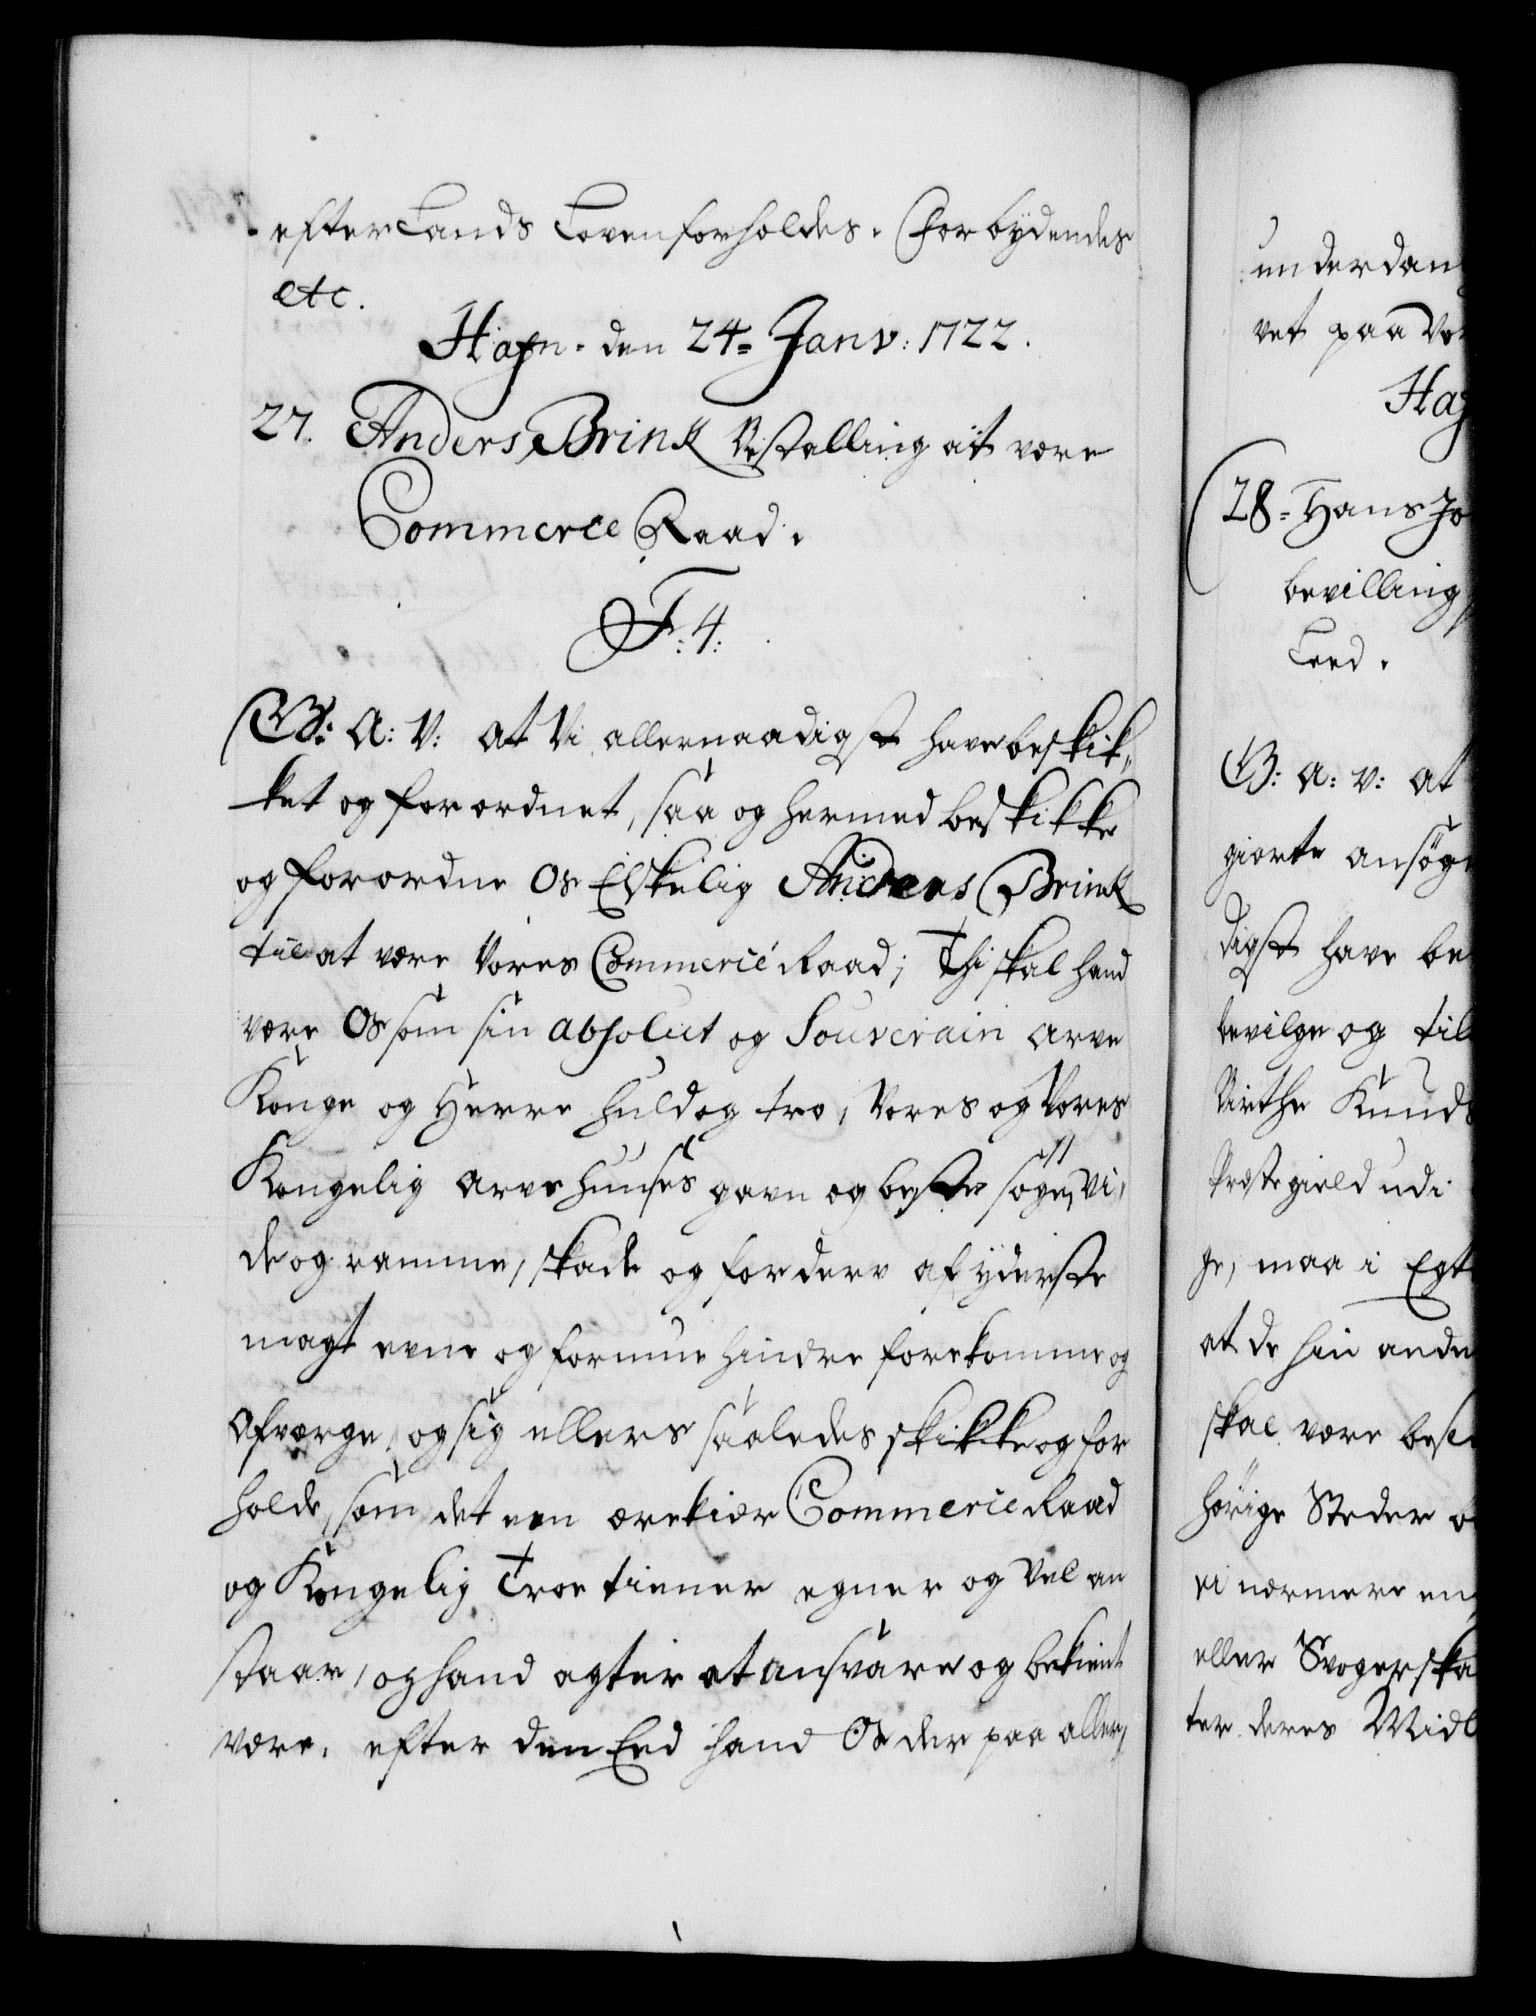 efter Lands Loven forholdes. Forbydendes
etc.
Hafn. den 24. Janv: 1722.
27. Anders Brink Bestalling at være
Commerce Raad.
F: 4:
G: A: V: at Vi allernaadigst have beskik„
ket og forordnet, saa og hermed beskikke
og forordne Os Elskelig Anders Brink
til at være Vores Commercie Raad; Thi skal hand
være Os som sin absolut og Souverain Arve
Konge og Herre huld og tro, Vores og Vores
Kongelig Arve Huuses gavn og beste søge, vi„
de og ramme, skade og forderv af yderste
magt evne og formue hindre forekomme og
afværge, og sig ellers saaledes skikke og for
holde, som det een ærekiær Commercie Raad
og Kongelig Troe tiener egner og vel an
staar, og hand agter at ansvare og bekient
være, efter den Eed hand Os der paa aller„
underdan
vet paa Vo
Haf
28. Hans Jo
bevilling
Leed.
G: A: V: at
giorte ansøg
digst have be
bevilge og til
Birthe Knuds
Præstegield udi
ge, maa i Egt
at de hin anden
skal være besl
hørige Steder b
ei nærmere en
eller Svogerska
ter deres Midl